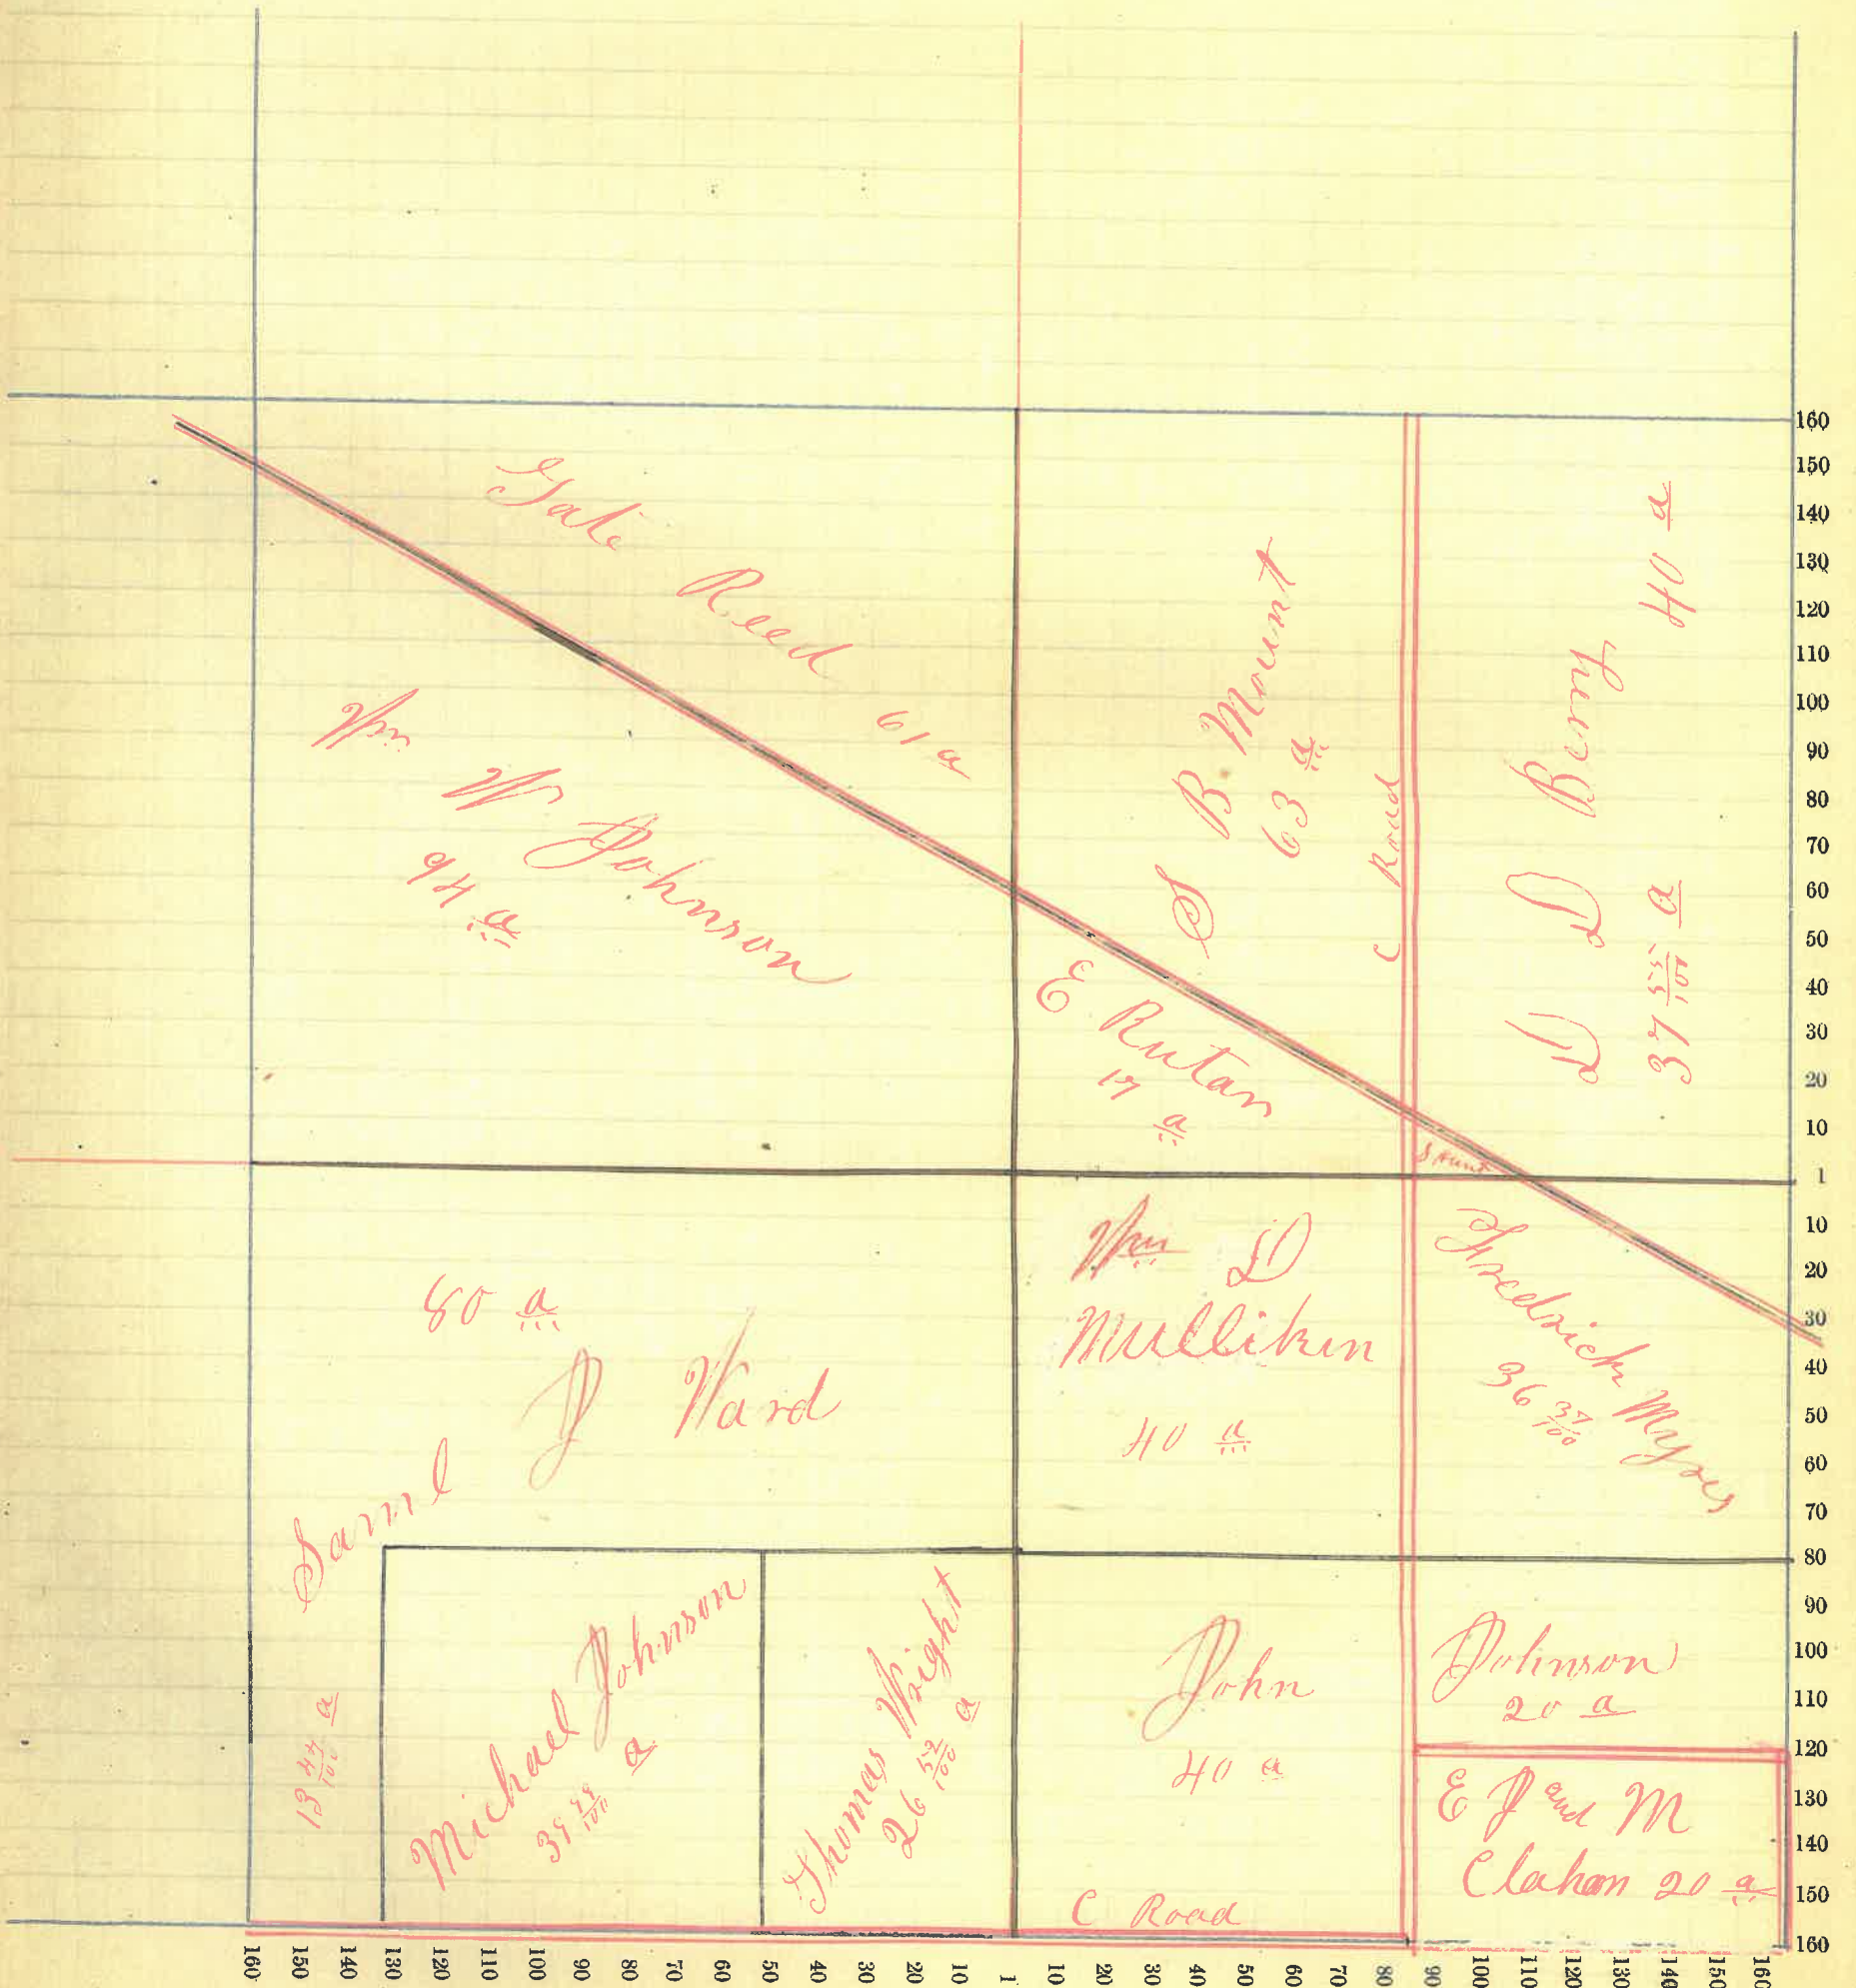 Tate Reed 61 a
Wm W Johnson
94 a
S B Mount
63 a
C Road
D D Berry 40 a
37 55/100 a
E Rutan
17 a
S Hunt
80 a
Saml J Ward
13 47/100 a
Wm D
Mulliken
40 a
Fredrick Myres
36 37/100
Michael Johnson
a
Thomas Wright
26 52/100 a
John Johnson
40 a
20 a
E J and M
Clahan 20 a
C Road
160
150
140
130
120
110
100
90
80
70
60
50
40
30
20
10
1
10
20
30
40
50
60
70
80
90
100
110
120
130
140
150
160
160 150 140 130 120 110 100 90 80 70 60 50 40 30 20 10 1 10 20 30 40 50 60 70 80 90 100 110 120 130 140 150 160